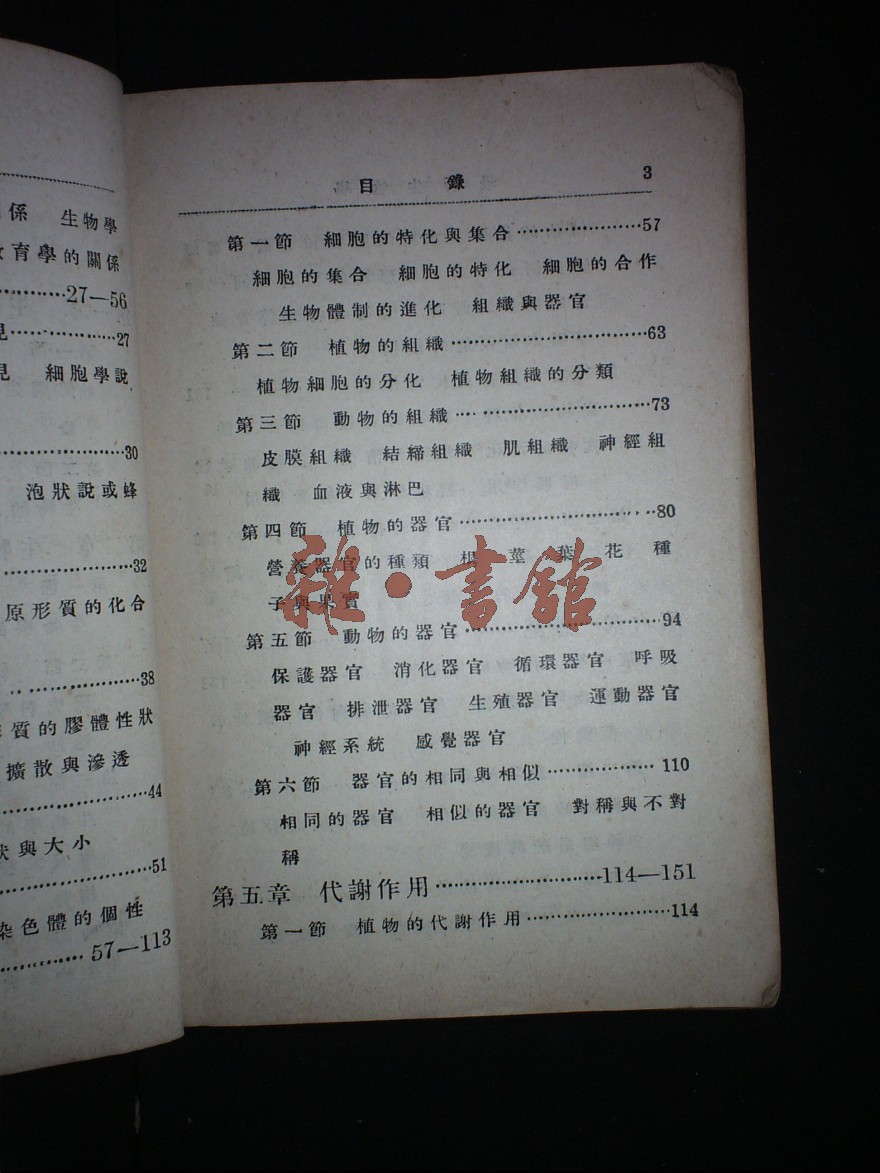 係 生物學
育學的關係
············27—56
············27
細胞學說
············30
泡狀說或蜂
············32
原形質的化合
············38
質的膠體性狀
擴散與滲透
············44
狀與大小
············51
染色體的個性
············57—113
目錄 3
第一節 細胞的特化與集合············57
細胞的集合 細胞的特化 細胞的合作
生物體制的進化 組織與器官
第二節 植物的組織············63
植物細胞的分化 植物組織的分類
第三節 動物的組織············73
皮膜組織 結締組織 肌組織 神經組
織 血液與淋巴
第四節 植物的器官············80
營養器官的種類 根 莖 葉 花 種
子與果實
雜·書館
第五節 動物的器官············94
保護器官 消化器官 循環器官 呼吸
器官 排泄器官 生殖器官 運動器官
神經系統 感覺器官
第六節 器官的相同與相似············110
相同的器官 相似的器官 對稱與不對
稱
第五章 代謝作用············114—151
第一節 植物的代謝作用············114